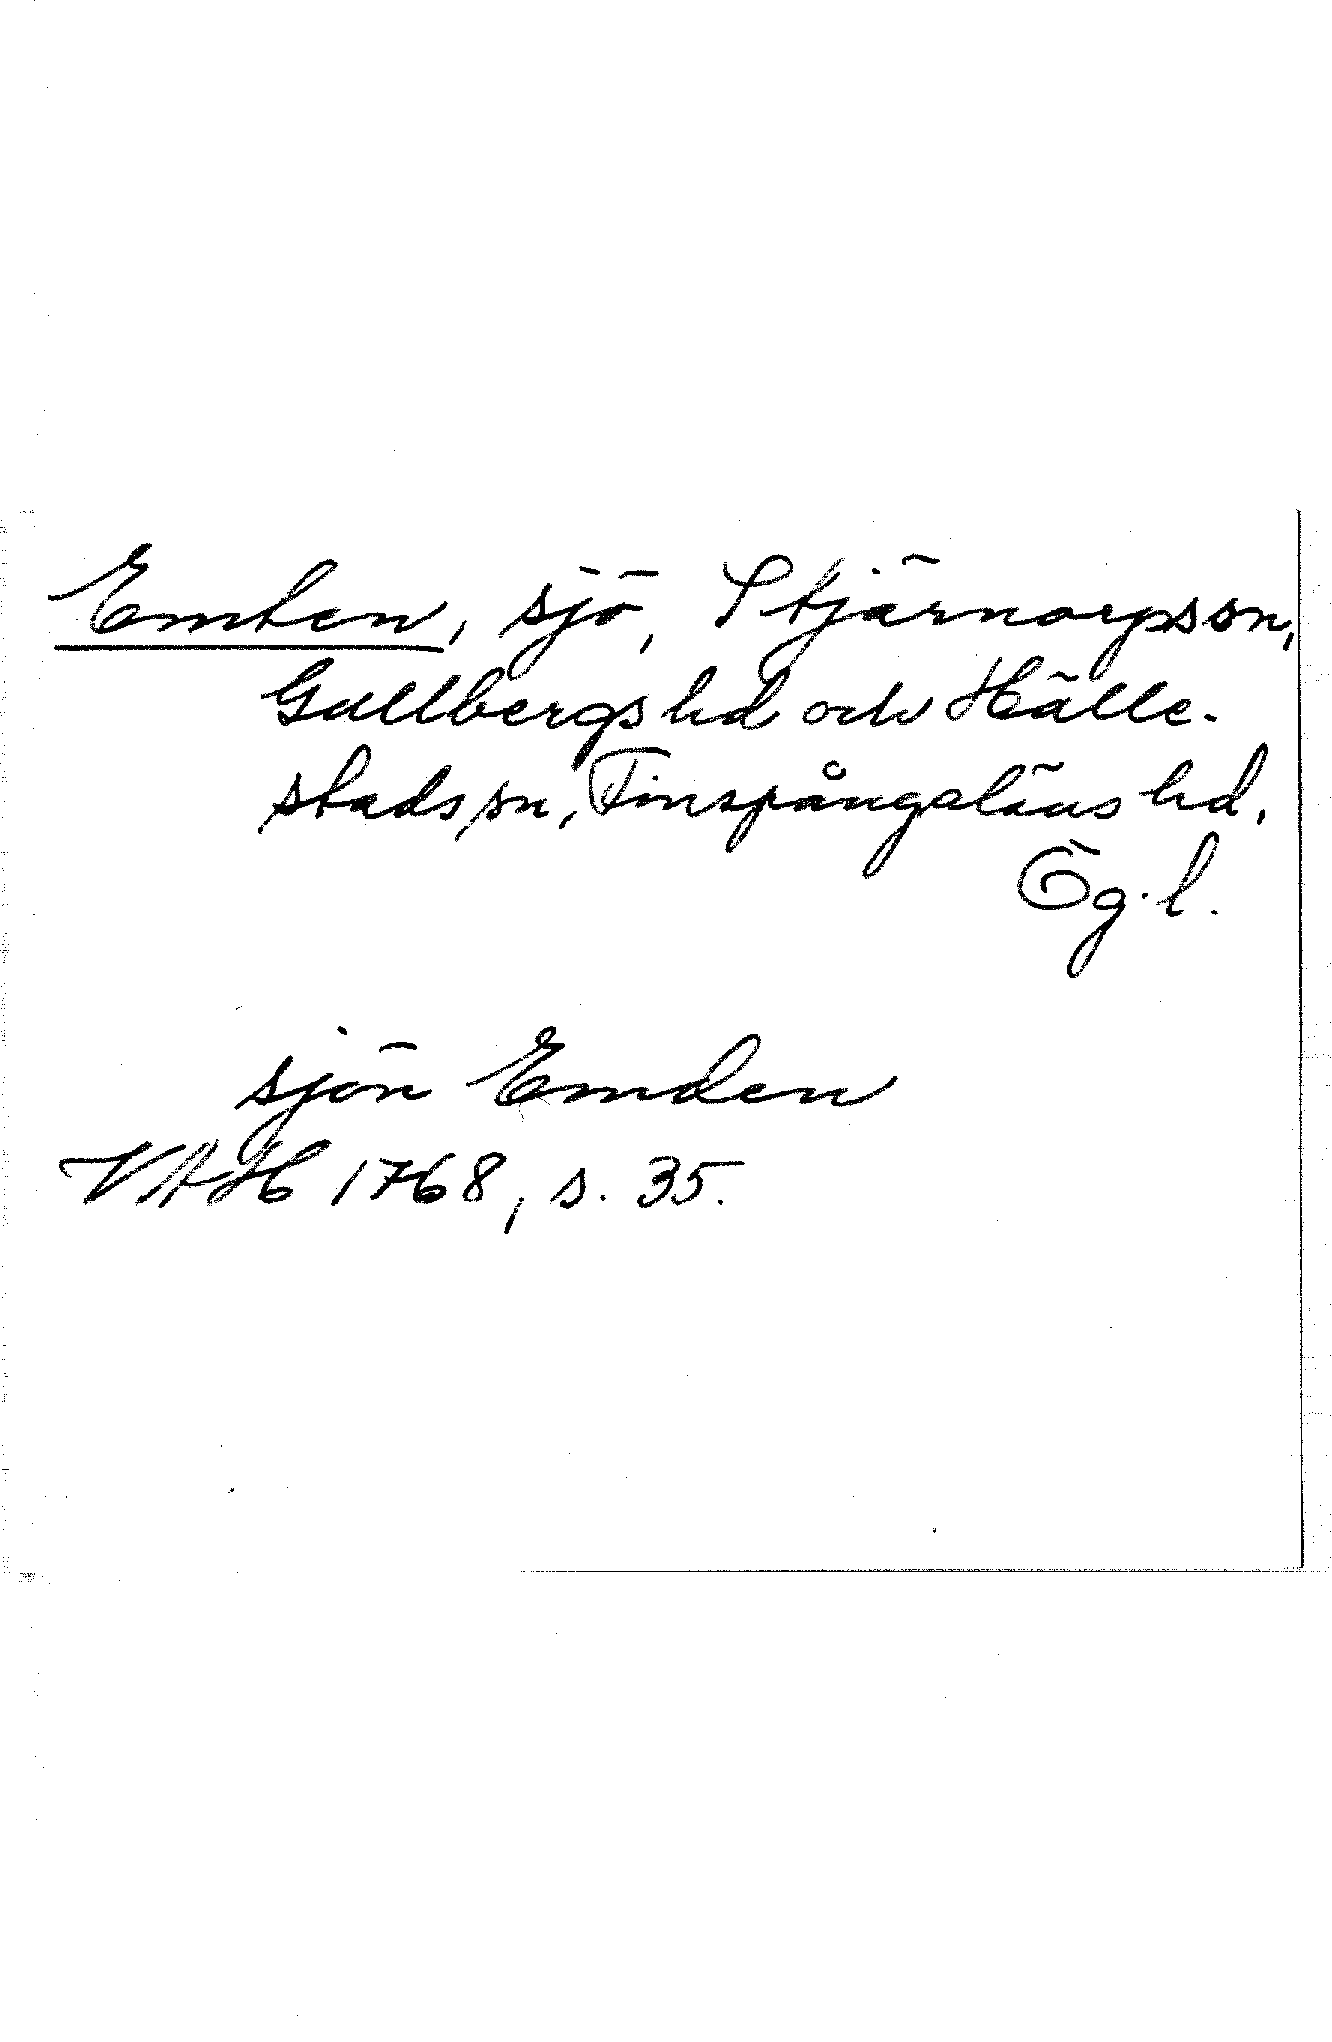 Emten, sjö, Stjärnorps sn,
Gullbergs hd och Hälle-
stads sn, Finspångaläns hd,
Ög. l.
sjön Emden
VAH 1768, s. 35.